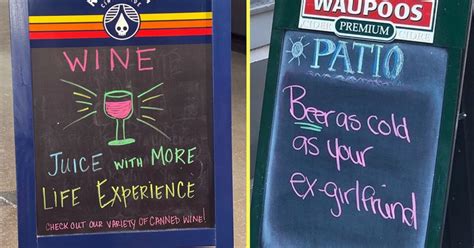 WINE
JUICE WITH MORE
LIFE EXPERIENCE
CHECK OUT OUR VARIETY OF CANNED WINE!
WAUPOOS
PREMIUM
PATIO
Beer as cold
as your
ex-girlfriend